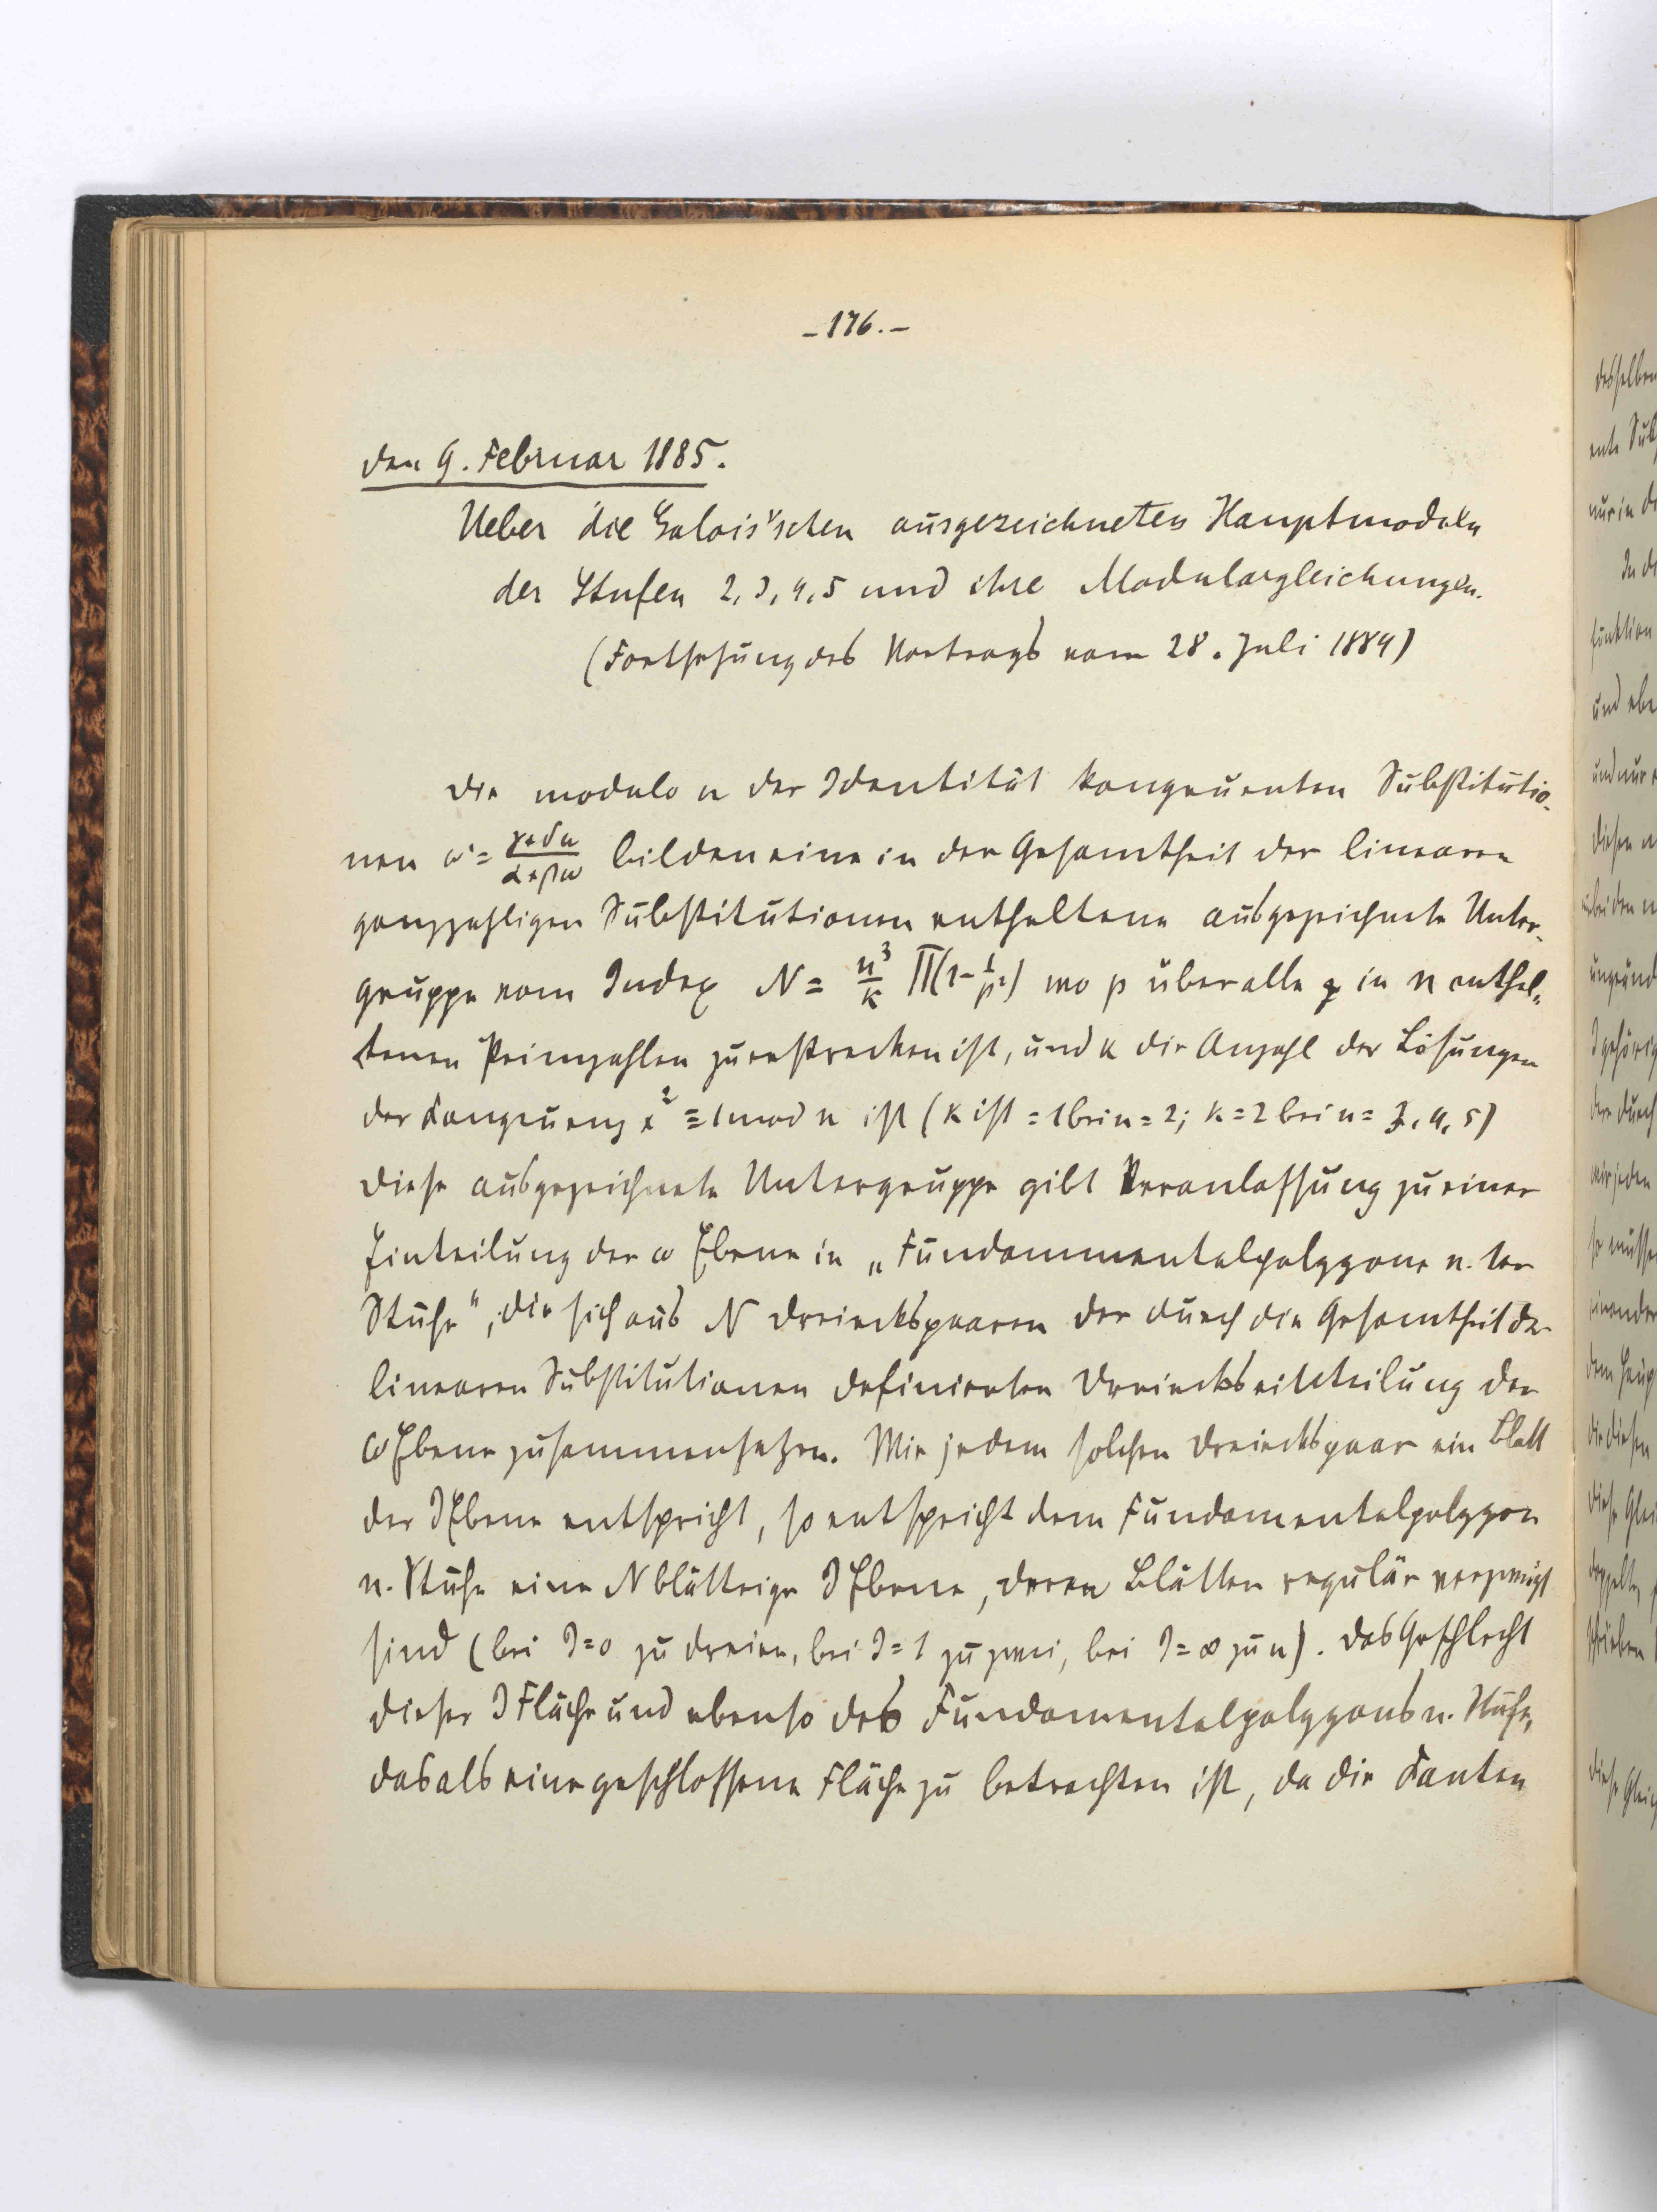 - 176. -
den 9. Februar 1885.
Ueber die Galois'schen ausgezeichneten Hauptmodeln
der Stufen 2, 3, 4, 5 und ihre Modulargleichungen.
(Fortsetzung des Vortrags vom 28. Juli 1884)
Die modulo n der Identität kongruenten Substitutio-
nen ω' = (γ+δω)/(α+βω) bilden eine in der Gesamtheit der linearen
ganzzahligen Substitutionen enthaltene ausgezeichnete Unter-
gruppe vom Index N = n³/k ∏(1-1/p²) wo p über alle in n enthal-
tenen Primzahlen zu erstrecken ist, und k die Anzahl der Lösungen
der Kongruenz x² ≡ 1 mod n ist (k ist = 1 bei n = 2; k = 2 bei n = 3, 4, 5)
Diese ausgezeichnete Untergruppe gibt Veranlassung zu einer
Einteilung der ω Ebene in „Fundammentalpolygone n. ter
Stufe“, die sich aus N Dreieckspaaren der durch die Gesamtheit der
linearen Substitutionen definierten Dreieckseinteilung der
ω Ebene zusammensetzen. Wie jedem solchen Dreieckspaar ein Blatt
der J Ebene entspricht, so entspricht dem Fundamentalpolygon
n. Stufe eine N blättrige J Ebene, deren Blätter regulär verzweigt
sind (bei J=0 zu dreien, bei J=1 zu zwei, bei J=∞ zu n). Das Geschlecht
dieser J Fläche und ebenso des Fundamentalpolygons n. Stufe,
das als eine geschlossene Fläche zu betrachten ist, da die Kanten
desselben